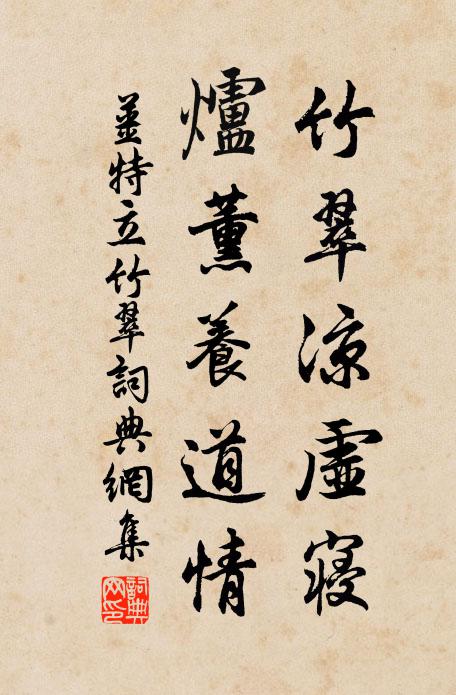 竹翠涼虛寢
爐薰養道情
姜特立竹翠詞典網集
詞典網印